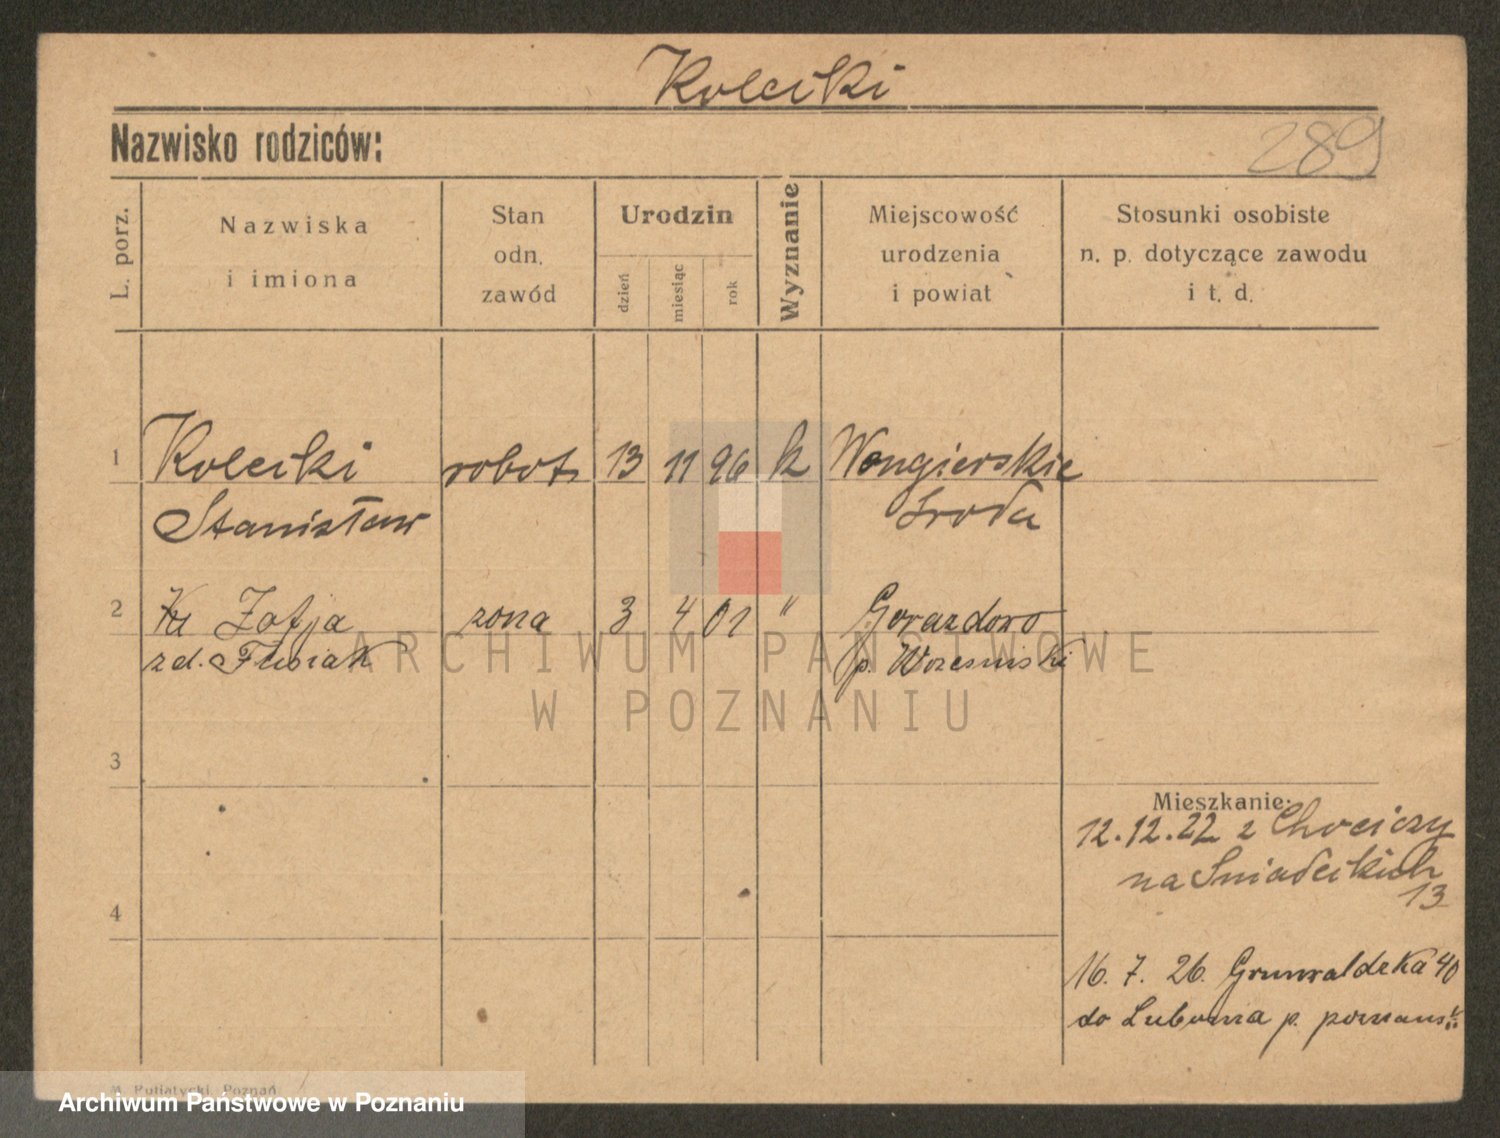 Kolecki
Nazwisko rodziców:
289
L. porz.
Nazwiska
i imiona
Stan
odn.
zawód
Urodzin
dzień
miesiąc
rok
Wyznanie
Miejscowość
urodzenia
i powiat
Stosunki osobiste
n. p. dotyczące zawodu
i t. d.
1 Kolecki robot. 13 11 96 k Wengierskie
Stanisław Sroda
2 Zofja zona 3 4 01 " Gorazdowo
zd. p. Wrzesinski
ARCHIWUM PAŃSTWOWE
W POZNANIU
3
Mieszkanie:
12.12.22 z Chociczy
na Sniadeckich
13
4
16. 7. 26. Grunwaldzka 40
do Lubonia p. poznański
M. Putiatycki, Poznań
Archiwum Państwowe w Poznaniu